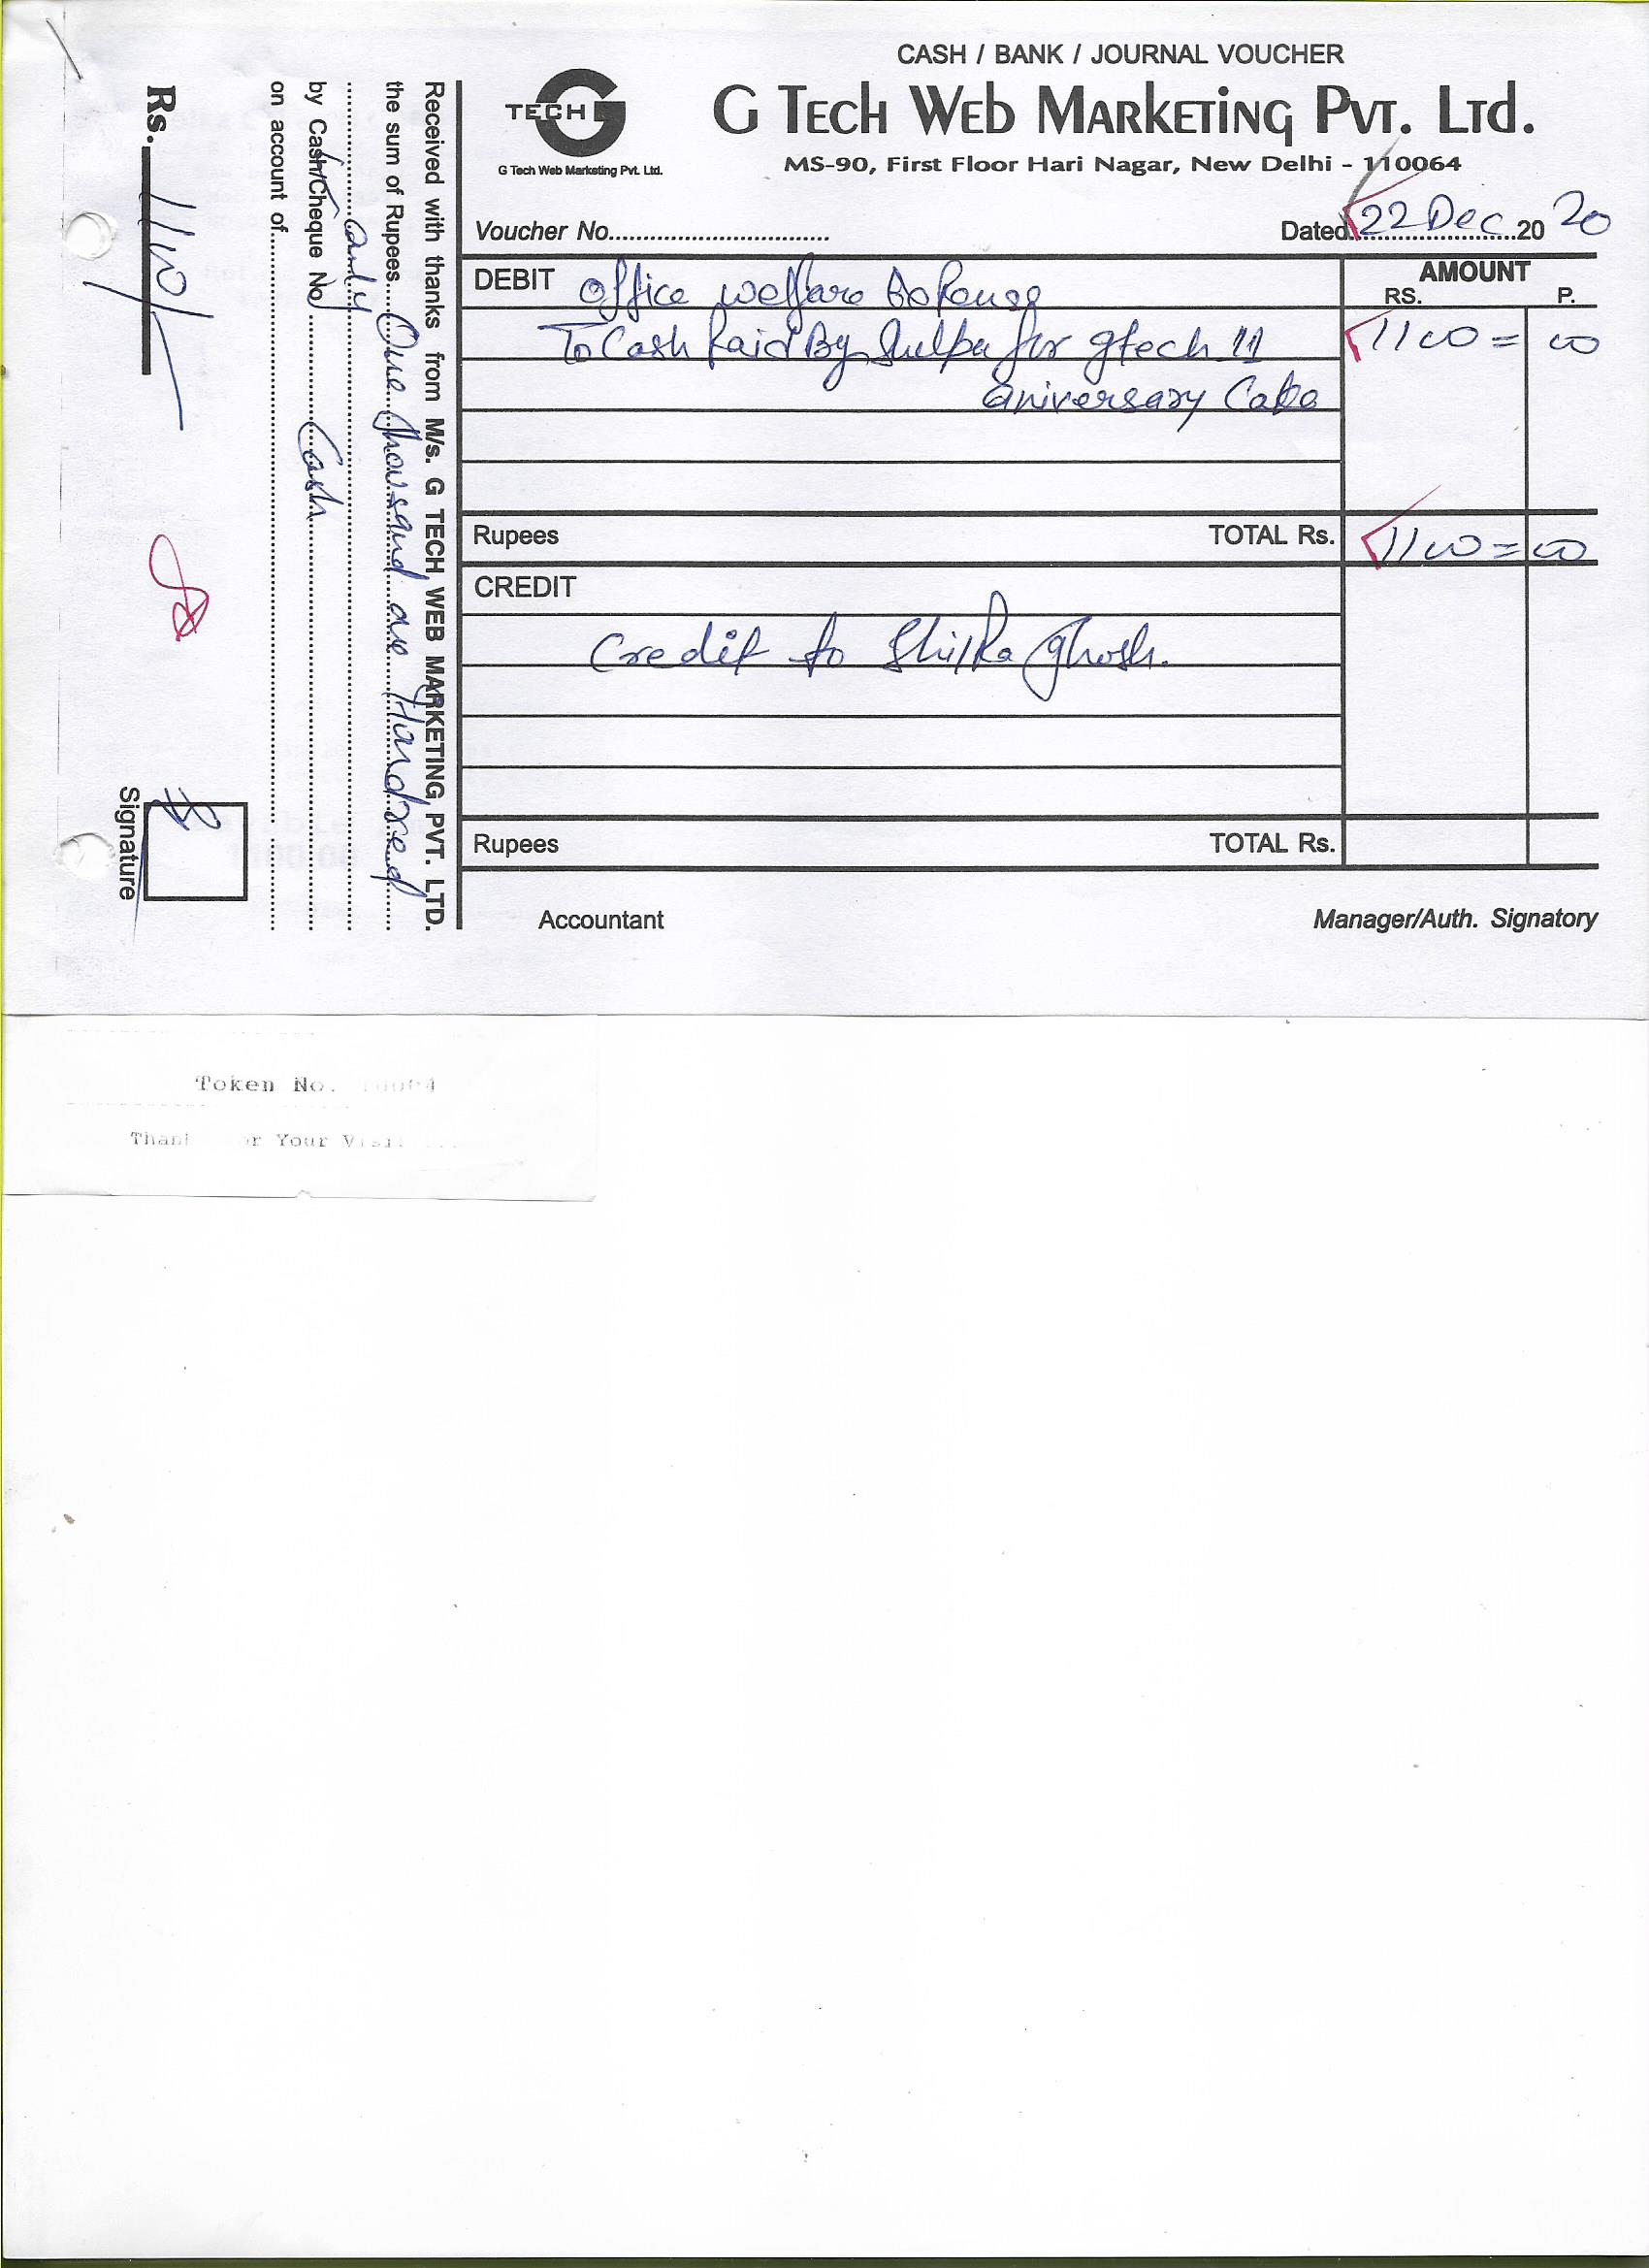 CASH / BANK / JOURNAL VOUCHER
TECH G
G Tech Web Marketing Pvt. Ltd.
G Tech Web Marketing Pvt. Ltd.
MS-90, First Floor Hari Nagar, New Delhi - 110064
Voucher No.............................. Dated 22 Dec 20 20
DEBIT office welfare AMOUNT
RS. P.
To Cash Paid By for gtech 11 1100 = 00
aniversary Cake
Rupees TOTAL Rs. 1100 = 00
CREDIT
Credit to Shilpa Ghosh.
Rupees TOTAL Rs.
Accountant Manager/Auth. Signatory
Received with thanks from M/s. G TECH WEB MARKETING PVT. LTD.
the sum of Rupees One Thousand one Hundred
only
by Cash/Cheque No. Cash
on account of
Rs. 1100/-
Signature
Token No.
Your